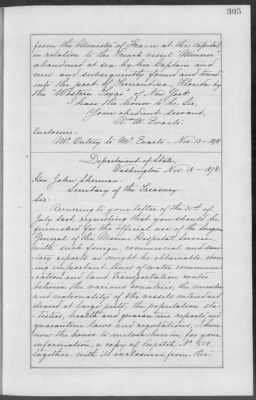 395
from the Minister of France at this Capital,
in relation to the French vessel
abandoned at sea by her Captain and
crew and subsequently found and towed
into the port of Fernandina, Florida by
the Western Texas of New York.
I have the honor to be, Sir,
Your obedient servant,
Wm. M. Evarts.
Enclosure.
M. Outrey to Mr Evarts. Nov. 13-1878
Department of State,
Washington Nov. 18-1878.
Hon. John Sherman,
Secretary of the Treasury
Sir:
Recurring to your letter of the 31st of
July last, requesting that you should be
furnished for the official use of the Surgeon
General of the Marine Hospital Service,
with such foreign, commercial and
reports as might be obtainable show-
ing important lines of water communi-
cation and land transportation routes
between the various countries, the number
and nationality of the vessels entered and
cleared at large ports, the population sta-
tistics, health and quarantine reports, and
quarantine laws and regulations, I have
now the honor to enclose herein, for your
information, a copy of dispatch No
together with its enclosures, from the